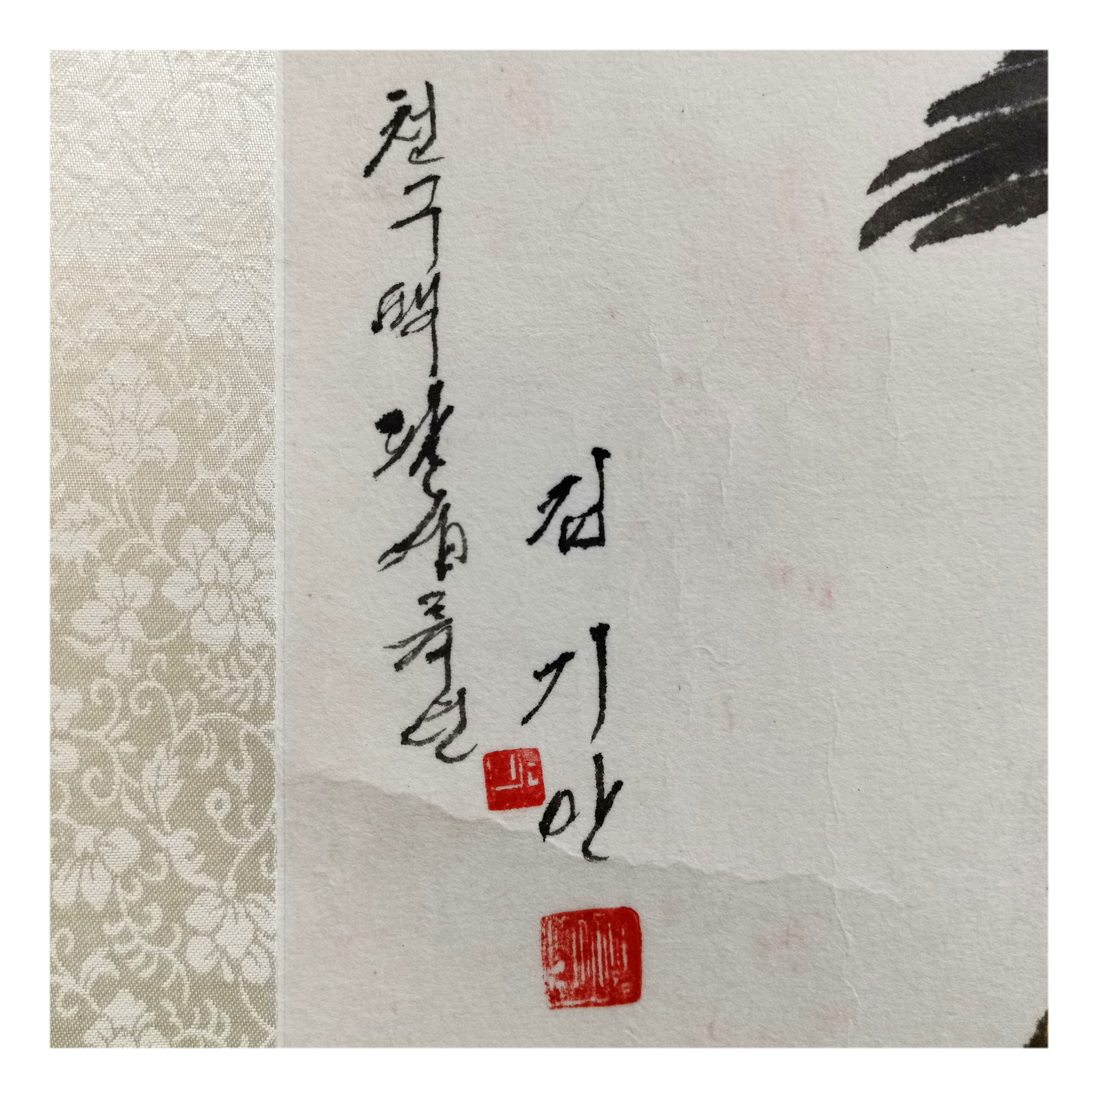 천구백팔십륙년
김기만